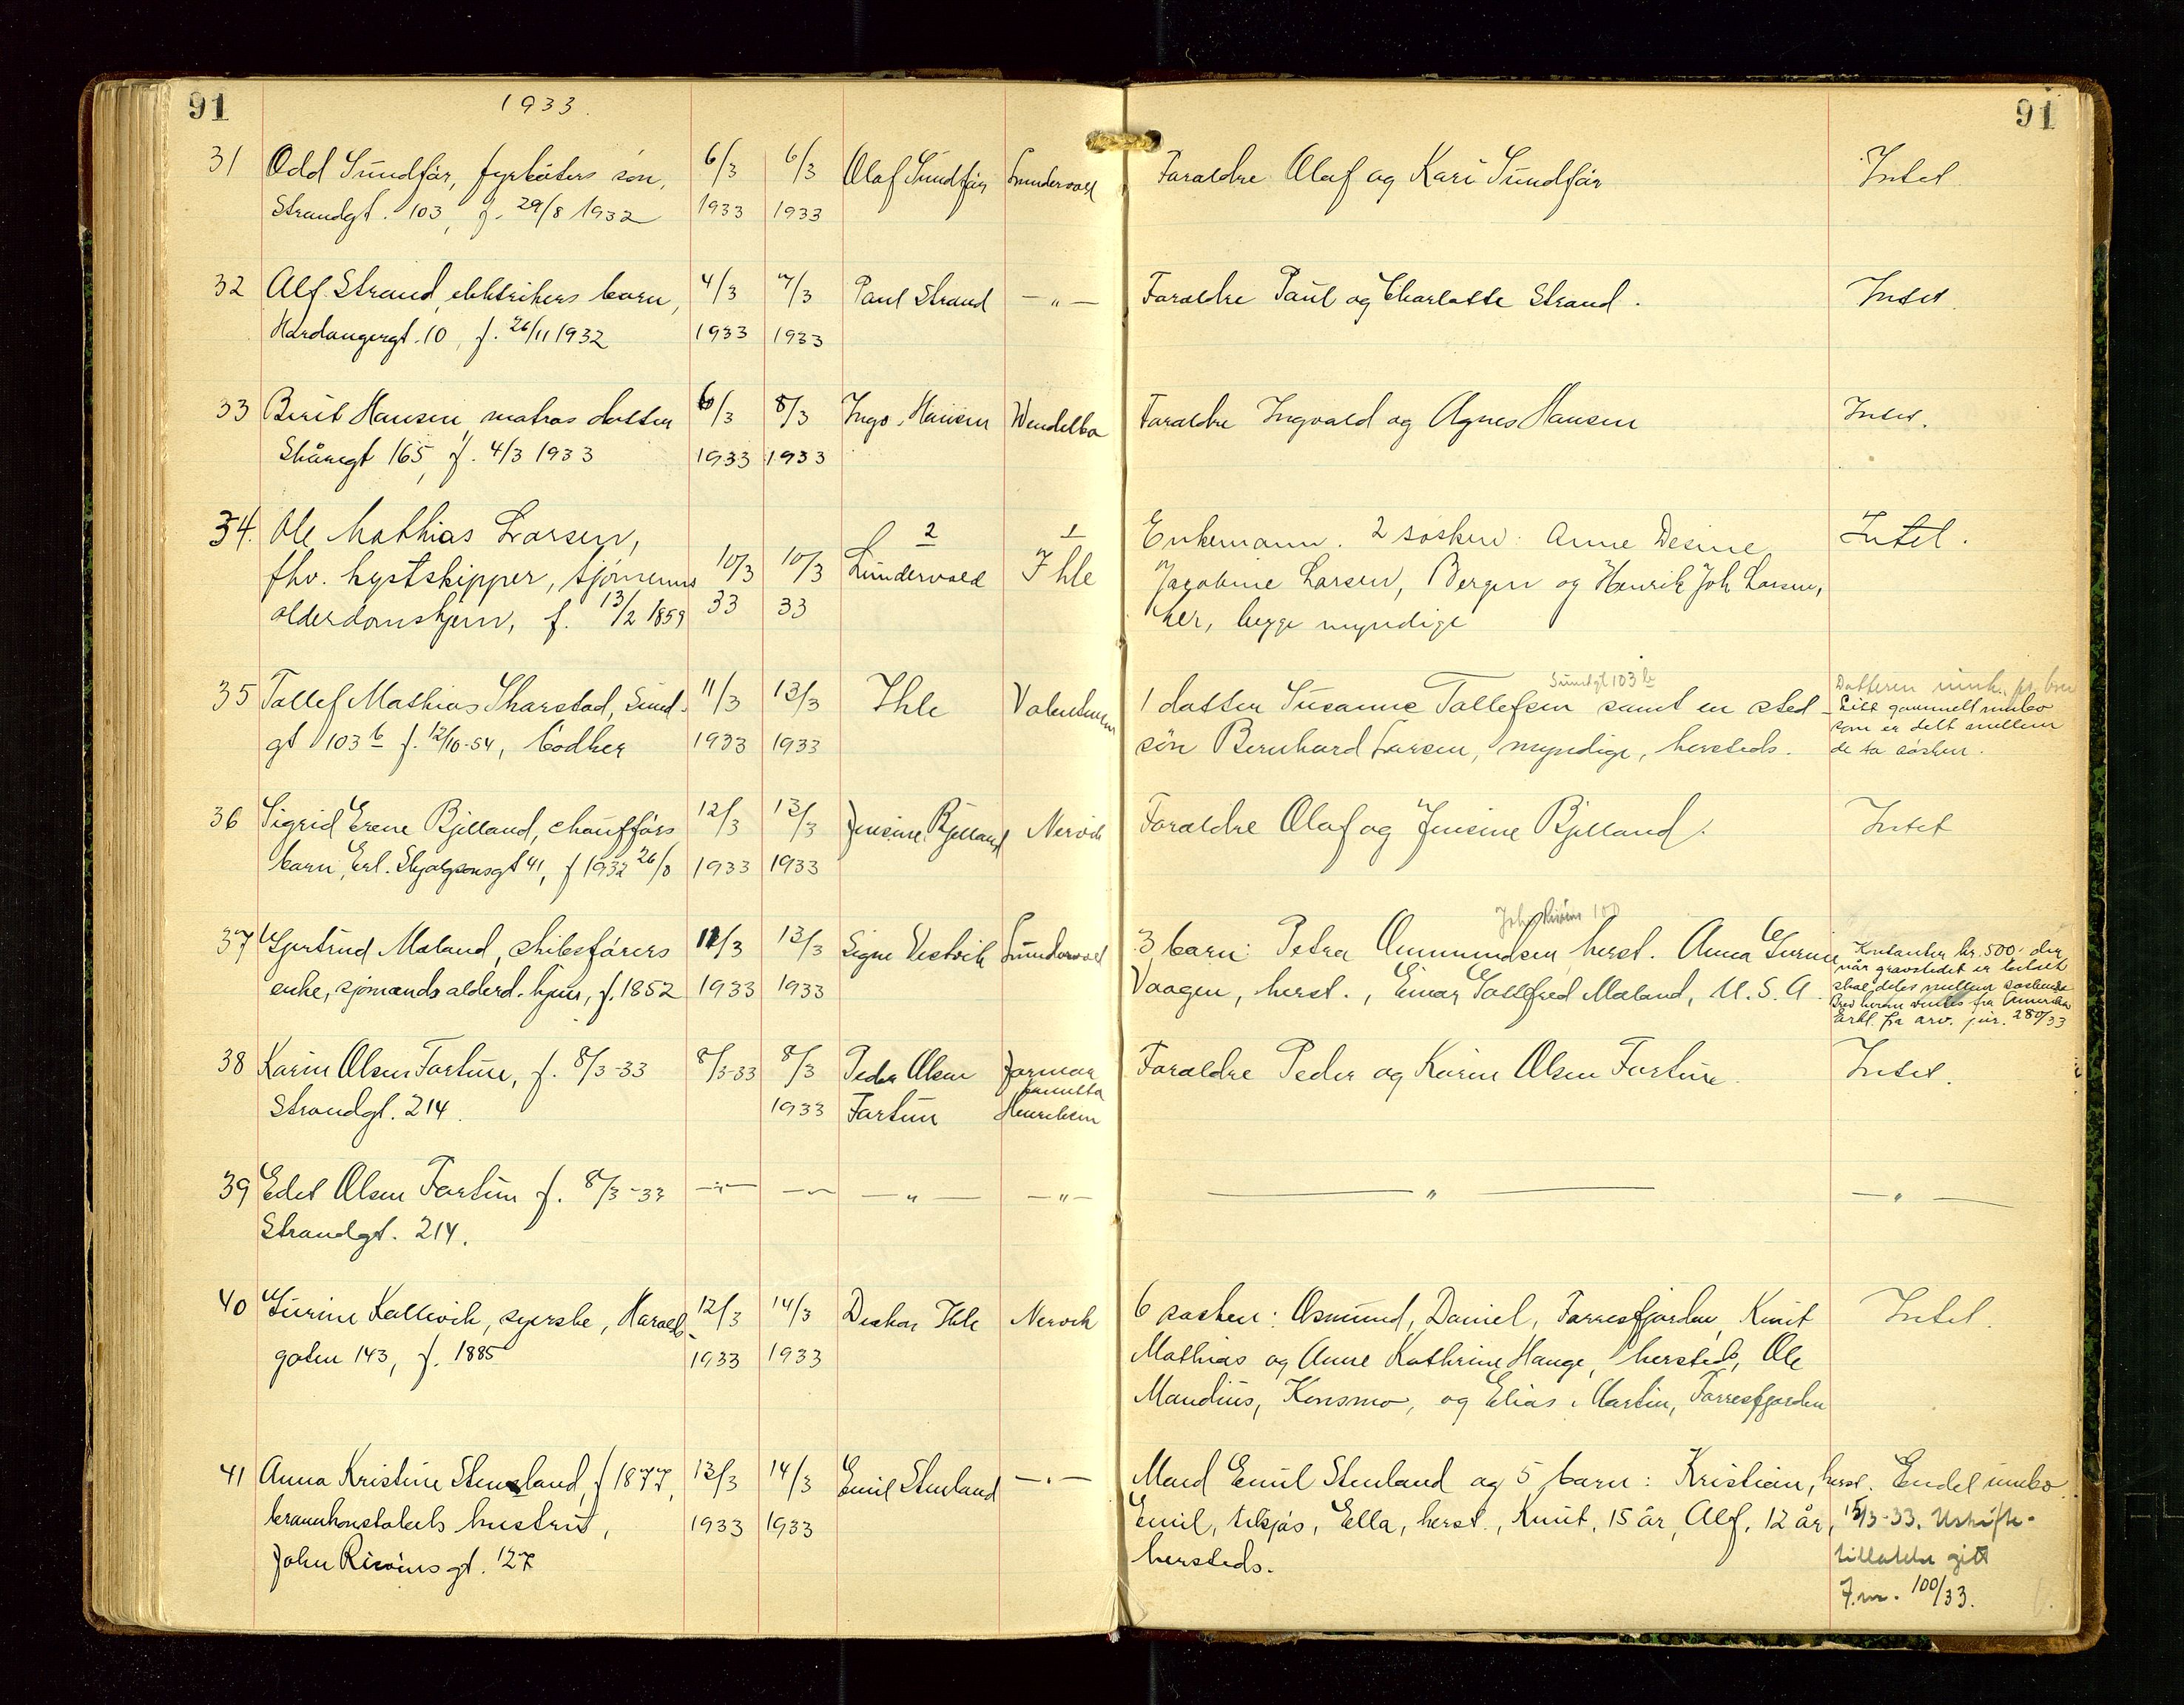 91 1933. 91
31 Odd Sundfør, fyrbøters søn, 6/3 6/3 Olaf Sundfør Lundervold Foraldre Olaf og Kari Sundfør Intet
Strandgt. 103, f. 29/8 1932 1933 1933
32 Alf Strand, elektrikers barn, 4/3 7/3 Paul Strand — " — Foraldre Paul og Charlotte Strand. Intet.
Hardangergt. 10, f. 26/11 1932 1933 1933
33 Berit Hansen, matros datter 6/3 8/3 Ingv. Hansen Wendelbo Foraldre Ingvald og Agnes Hansen Intet.
Skåregt 165, f. 4/3 1933 1933 1933
34. Ole Mathias Larsen, 2 1 Enkemann. 2 søsken: Anne Desine Intet.
fhv. kystskipper, sjømenns 10/3 10/3 Lundervold Ihle Jacobine Larsen, Bergen og Henrik Joh Larsen,
alderdomshjem, f. 13/2 1859 33 33 her, begge myndige
Sundgt 103 b
35 Tollef Mathias Skarstad, Sund- 11/3 13/3 Ihle Valentinsen 1 datter Susanne Tollefsen samt en sted- Litt gammelt innbo
som er delt mellem
gt 103 b f. 12/10-54, bødker 1933 1933 søn Bernhard Larsen, myndige, hersteds. de to søsken.
36 Sigrid Erene Bjelland, chaufførs 12/3 13/3 Jensine Bjelland Nervik Foraldre Olaf og Jensine Bjelland. Intet
barn, Erl. Skjalgsonsgt 41, f 1932 26/8 1933 1933
37 Gjertrud Maland, skibsførers 11/3 13/3 Signe Vestvik Lundervold 3 barn: Petra Ommundsen, herst. Anna Serine Kontanter kr. 500,- der
når gravstedet er betalt
enke, sjømands alderd. hjem, f. 1852 1933 1933 Vaagen, herst., Einar Gottfred Maland, U.S.A. skal deles mellem søskende
fra Amerika
Erkl. fra arv. jur. 280/33
38 Karin Olsen Fortun, f. 8/3-33 8/3-33 8/3 Peder Olsen Jormor Foraldre Peder og Karin Olsen Fortun. Intet.
Strandgt. 214. 1933 Fortun Henriksen
39 Edit Olsen Fortun f. 8/3-33 — " — — " — — " — — " — — " — — " —
Strandgt. 214.
40 Surine Kallevik, syerske, Haralds- 12/3 14/3 Diakon Ihle Nervik 6 søsken: Osmund, Daniel, Førresfjorden, Knut Intet.
gaten 143, f. 1885 1933 1933 Mathias og Anne Kathrine Hauge, hersteds, Ole
Mandius, Konsmo, og Elias Martin, Førresfjorden
41 Anna Kristine Stensland, f 1877, 13/3 14/3 Emil Stenland — " — Mand Emil Stenland og 5 barn: Kristian, herst. Endel innbo.
brannkonstabels hustru, 1933 1933 Emil, tilsjøs, Ella, herst., Knut, 15 år, Alf, 12 år, 15/3-33. Uskifte-
John Risøensgt. 127 hersteds. tillatelse gitt
J.nr. 100/33.